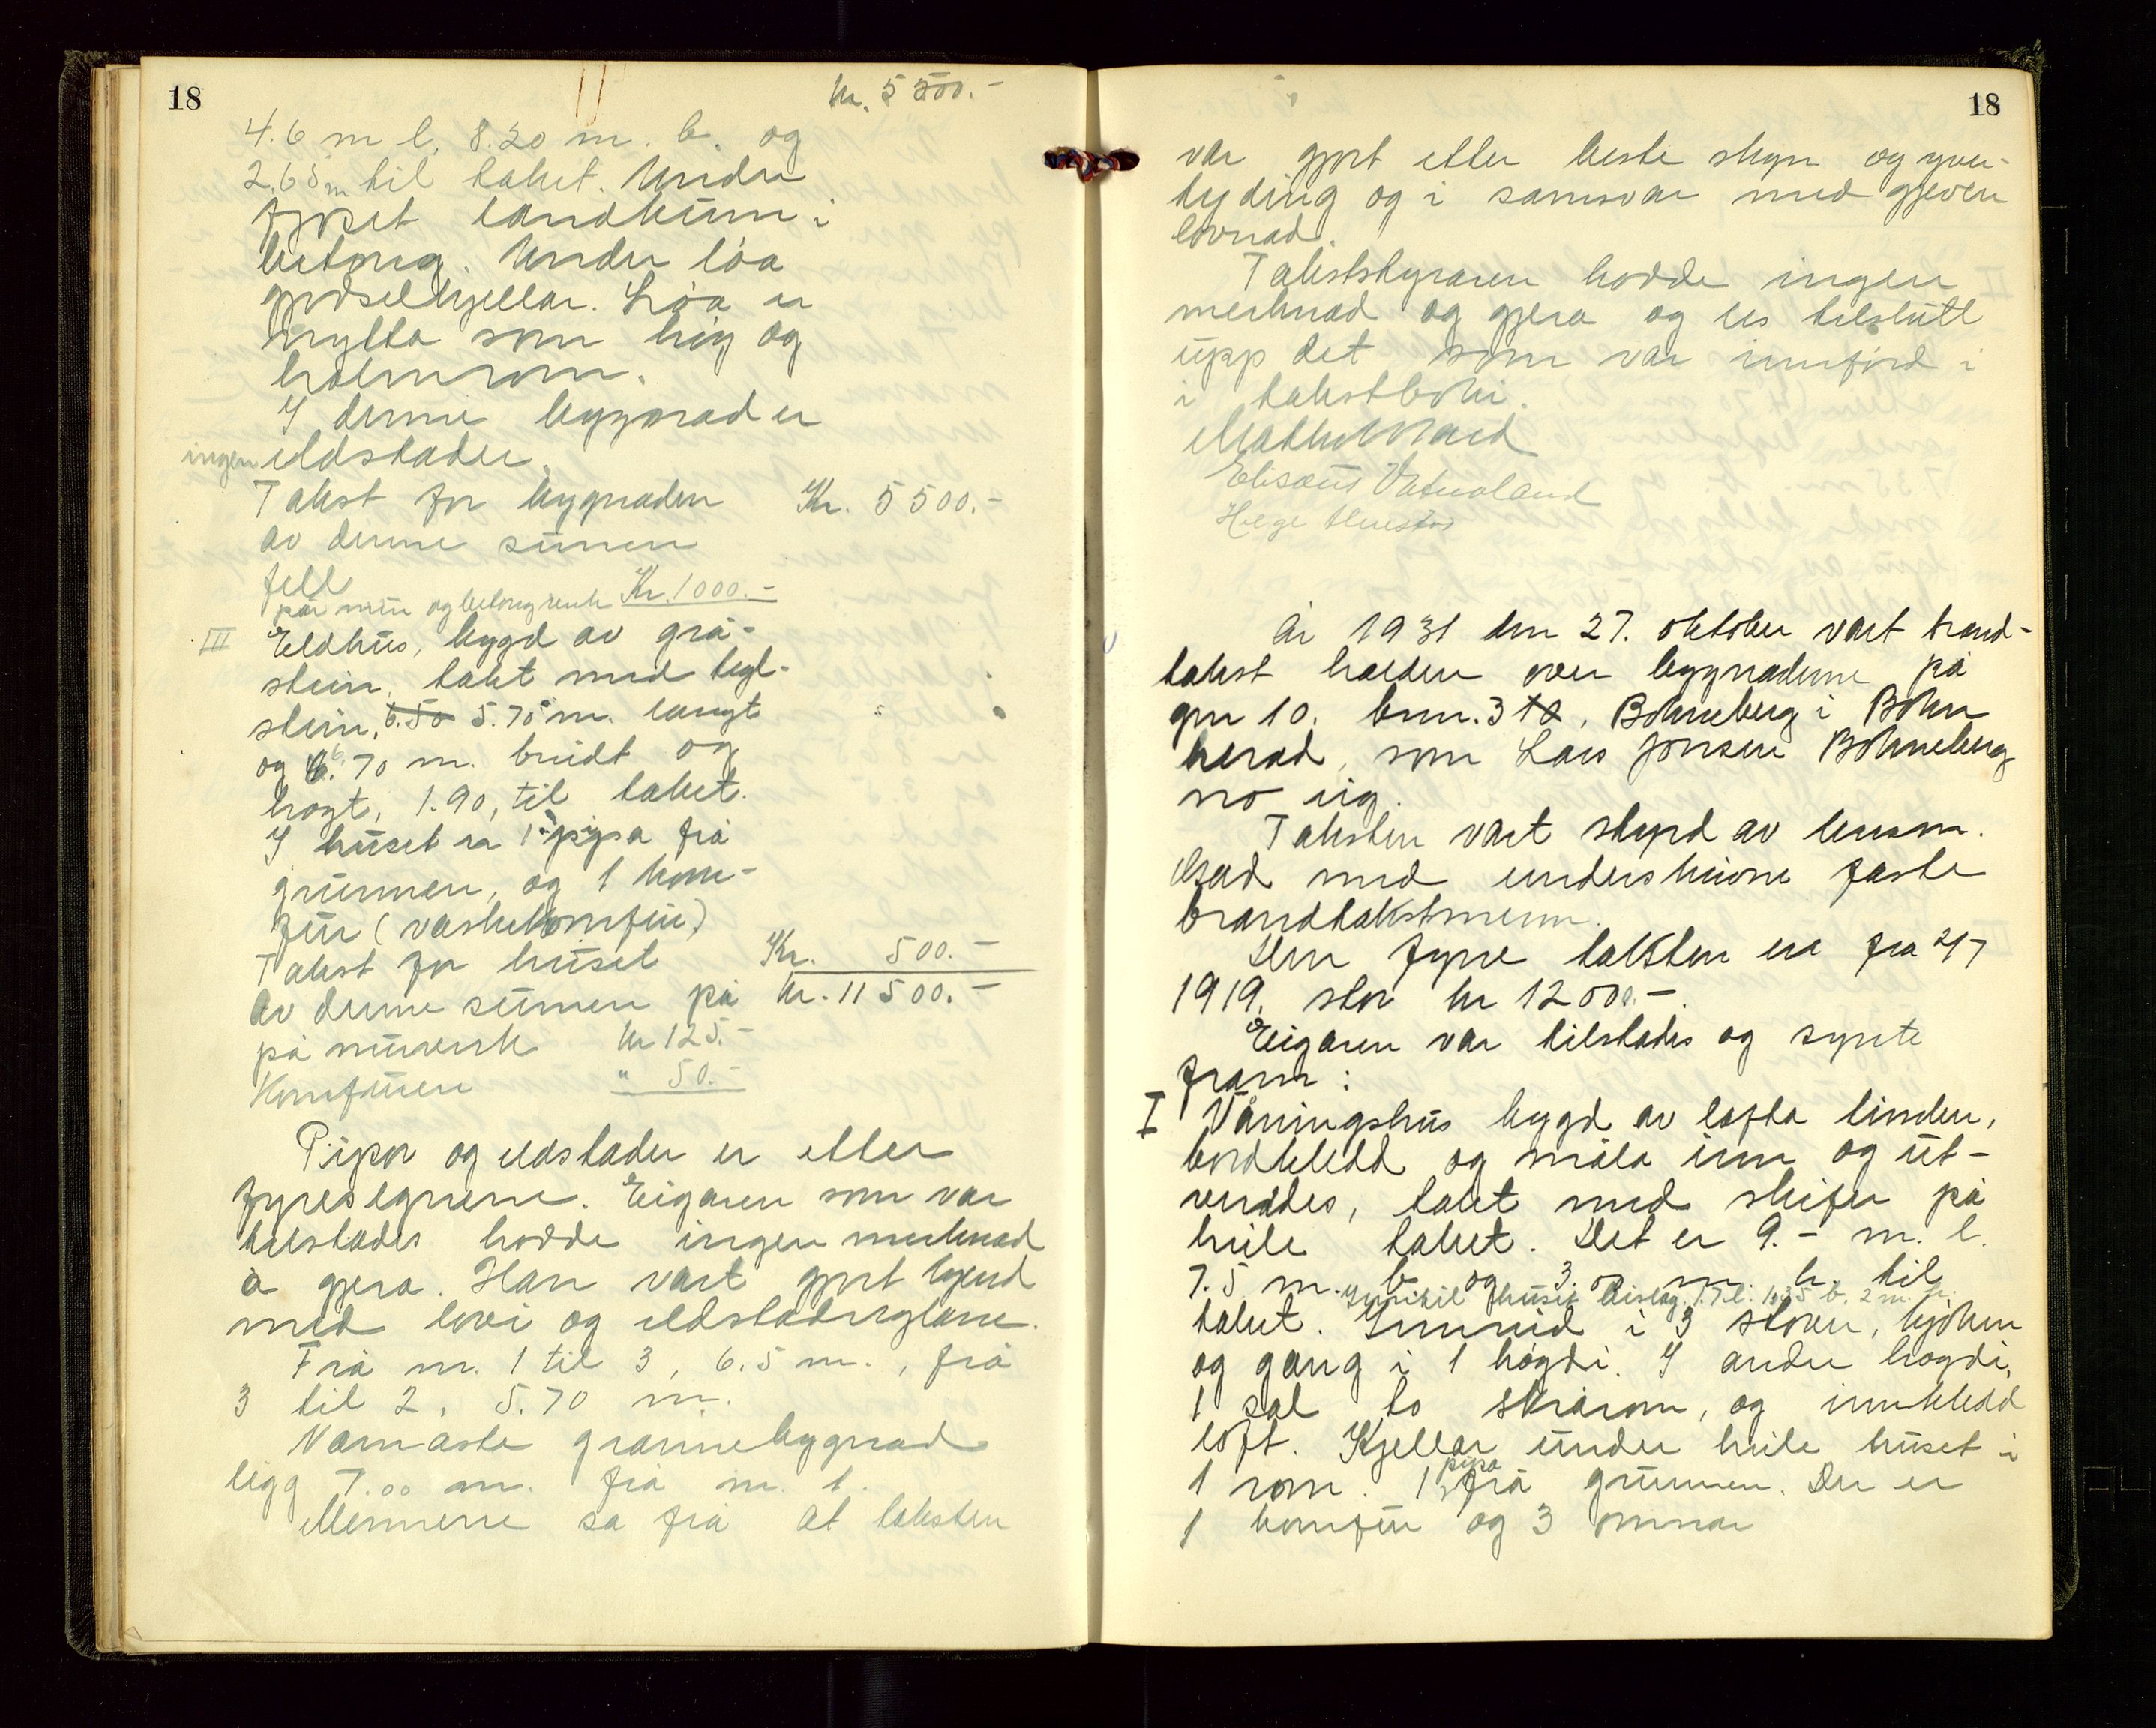 18
kr. 5500.-
4.6 m l. 8.20 m. b. og
2.65 m til taket. Under
fjoset landkum i
betong. Under løa
gjødselkjellar. Løa er
nytta som høy og
halmrom.
I denne bygnad er
ingen eldstader.
Takst for bygnaden Kr. 5500.-
av denne sumen
fell
på mur og betongverk Kr. 1000.-
III Eldhus, bygd av grå-
stein, takt med tegl-
stein, 6.50 5.70 m. langt
og 6.70 m. breidt og
høgt, 1.90, til taket.
I huset er 1 pipa frå
grunnen, og 1 kom-
fur (vaskekomfur)
Takst for huset Kr. 500.-
Av denne sumen på kr. 11500.-
på murverk kr 125.-
Komfuren " 50.-
Pipor og eldstader er etter
fyresegnene. Eigaren som var
tilstades hadde ingen merknad
å gjera. Han vart gjort kjend
med lovi og eldstadreglane.
Frå nr. 1 til 3, 6.5 m., frå
3 til 2, 5.70 m.
Næmaste grannebygnad
ligg 7.00 m. frå nr. 1.
Mennene sa frå at taksten
18
var gjort etter beste skyn og yver-
tyding og i samsvar med gjeven
lovnad.
Takststyraren hadde ingen
merknad og gjera og les tilslutt
upp det som var innførd i
i takstboki.
Elisæus Vatnaland
Helge
År 1931 den 27. oktober vart brand-
takst halden over bygnadene på
gnr 10. bnr. 3 10, Bøkneberg i Bokn
herad, som Lars Jonsen Bøkneberg
no eig.
Taksten vart styrd av lensm.
med underskrivne faste
brandtakstmenn.
Den fyrre taksten er fra 2/7
1919. stor kr 12000.-
Eigaren var tilstades og synte
fram:
I Våningshus bygd av lafta timber,
bordkledd og måla inn og ut-
vendes, takt med skifer på
heile taket. Det er 9.- m. l.
7.5 m. b. og 3.00 m. h. til
Inntil huset bislag 1.7 l. 1.35 b. 2 m. h.
taket. Innreid i 3 stover, kjøken
og gang i 1 høgdi. I andre høgdi,
1 sal to skrårom, og innkledd
loft. Kjellar under heile huset i
1 rom. 1 pipa frå grunnen. Der er
1 komfur og 3 omnar